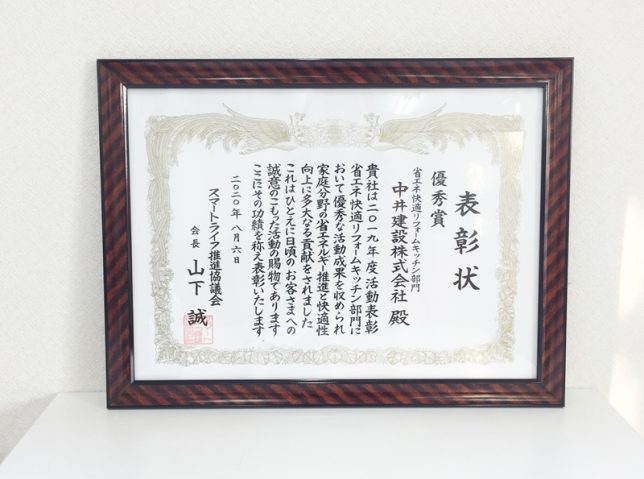 表彰状
優秀賞
省エネ快適リフォームキッチン部門
中井建設株式会社 殿
貴社は二〇一九年度活動表彰
省エネ快適リフォームキッチン部門に
おいて優秀な活動成果を収められ
家庭分野の省エネルギー推進と快適性
向上に多大なる貢献をされました
これはひとえに日頃のお客さまへの
誠意のこもった活動の賜物であります
ここにその功績を称え表彰いたします
二〇二〇年八月六日
スマートライフ推進協議会
会長 山下 誠